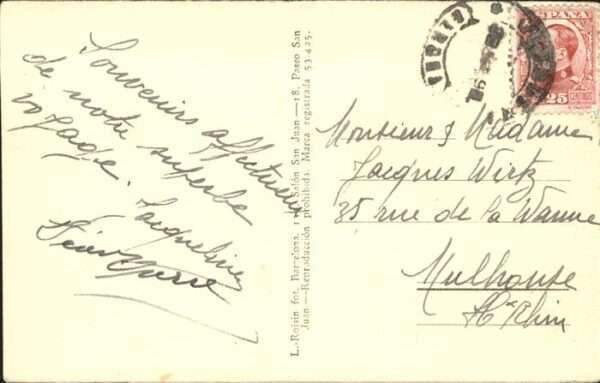 Souvenirs affectueux
de notre superbe
voyage. Jacqueline
L.-Roisin fot. Barcelona. Salón San Juan — 18, Paseo San
Juan. — Reproducción prohibida. Marca registrada 53.425.
ESPAÑA
25
CENTIMOS
Monsieur Madame
Jacques Wirtz
35 rue de la Wanne
Mulhouse
Ht Rhin